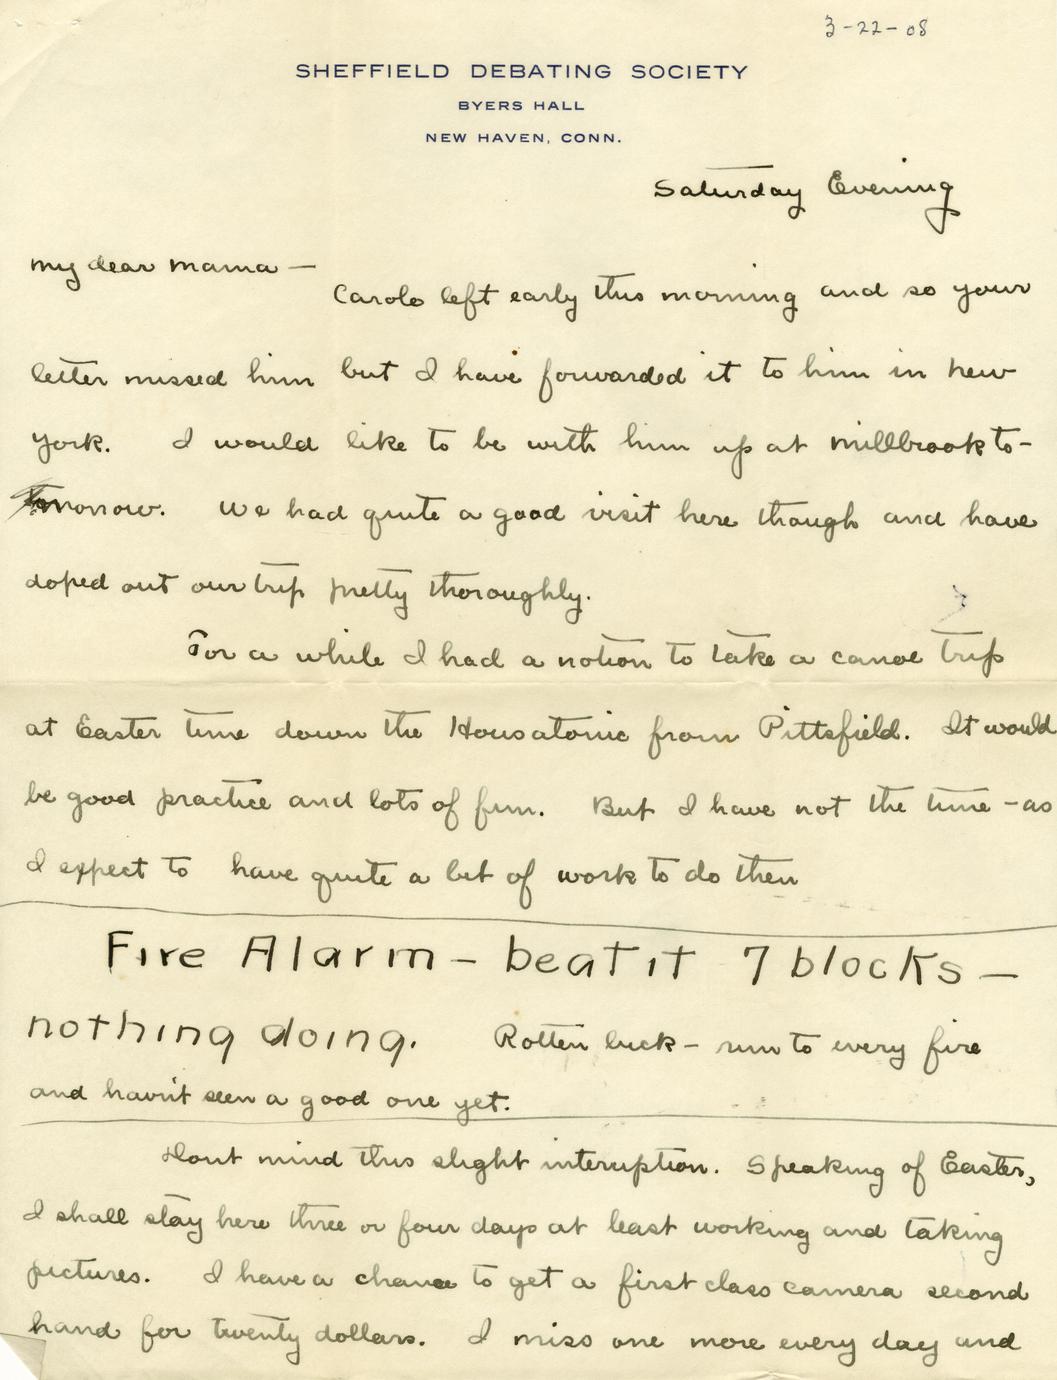 3-22-08
SHEFFIELD DEBATING SOCIETY
BYERS HALL
NEW HAVEN, CONN.
Saturday Evening
My dear Mama —
Carolo left early this morning and so your
letter missed him but I have forwarded it to him in New
York. I would like to be with him up at Millbrook to-
morrow. We had quite a good visit here though and have
doped out our trip pretty thoroughly.
For a while I had a notion to take a canoe trip
at Easter time down the Housatonic from Pittsfield. It would
be good practice and lots of fun. But I have not the time - as
I expect to have quite a bit of work to do then
Fire Alarm - beat it 7 blocks -
nothing doing. Rotten luck - run to every fire
and havn't seen a good one yet.
Dont mind this slight interuption. Speaking of Easter,
I shall stay here three or four days at least working and taking
pictures. I have a chance to get a first class camera second
hand for twenty dollars. I miss one more every day and